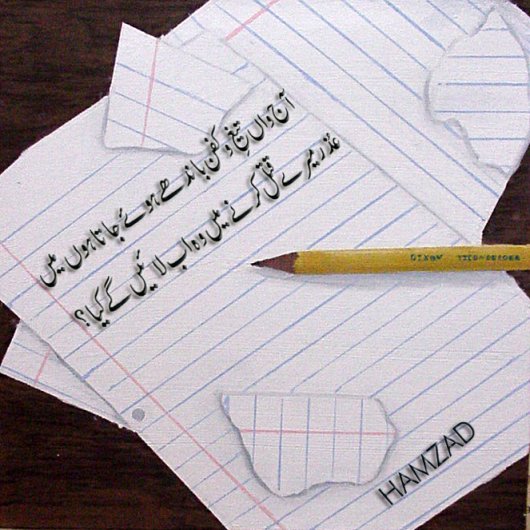 آج واں تیغ و کفن باندھے ہوئے جاتا ہوں میں
عذر میرے قتل کرنے میں وہ اب لائیں گے کیا؟
DIXON TICONDEROGA
HAMZAD